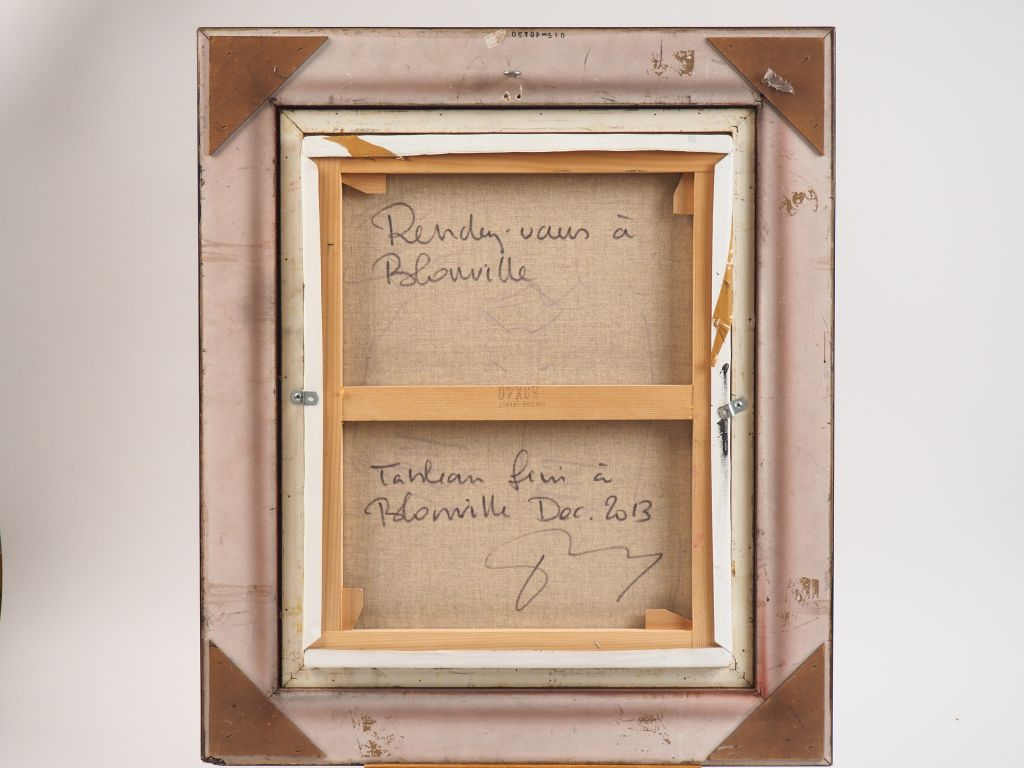 Rendez-vous à
Blonville
Tableau fini à
Blonville Dec. 2013